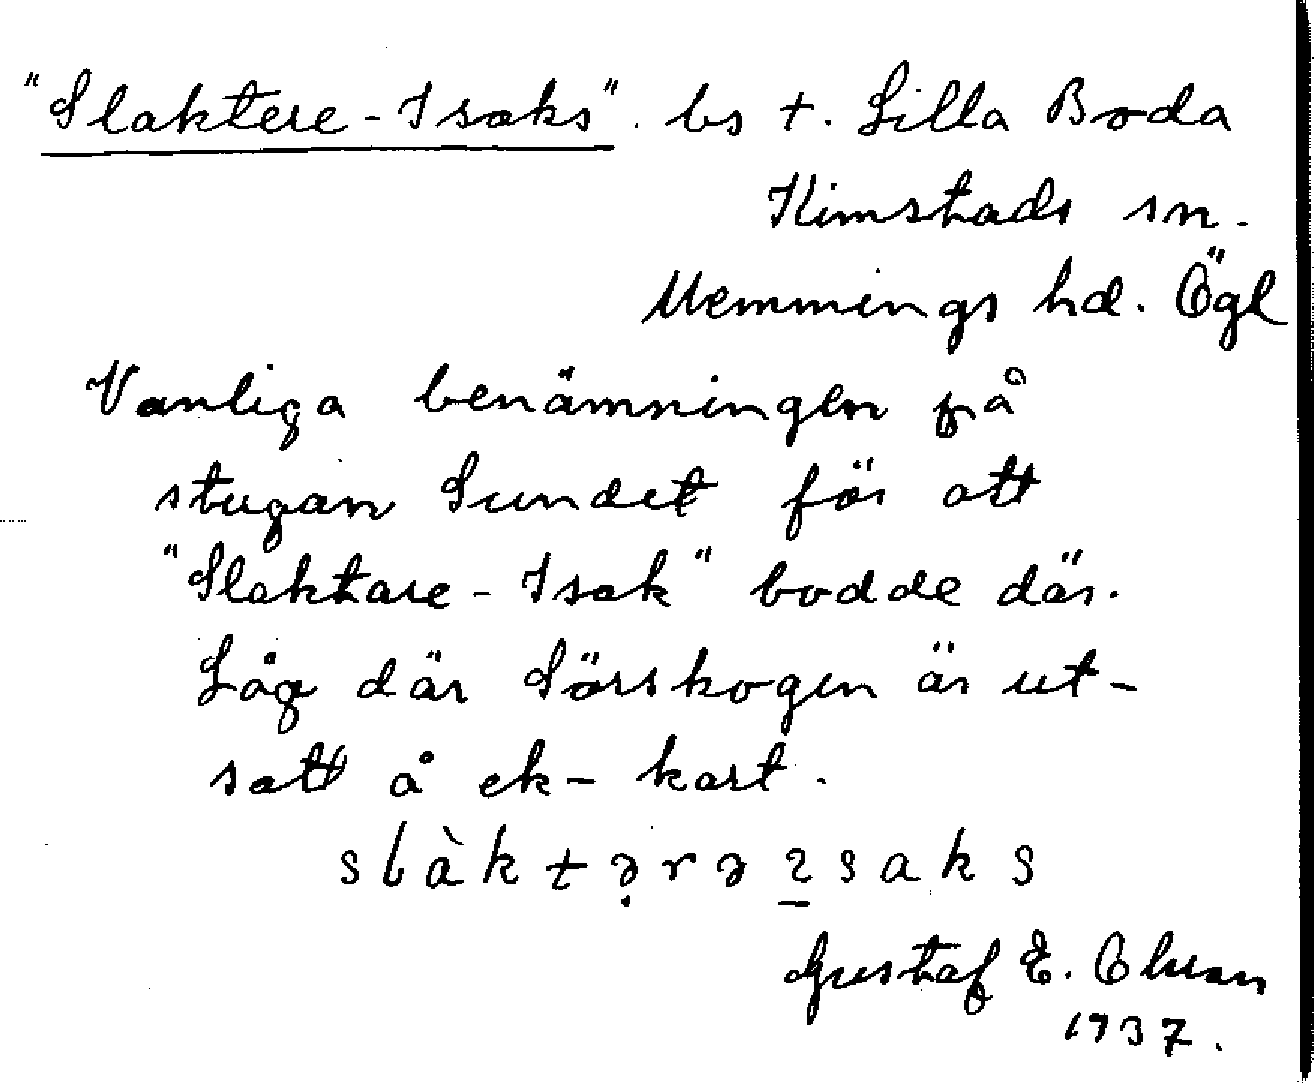 "Slaktere-Isaks". bs t. Lilla Boda
Kimstads sn.
Memmings hd. Ögl
Vanliga benämningen på
stugan Sundet för att
"Slaktare-Isak" bodde där.
Låg där Sörskogen är ut-
satt å ek-kart.
slàktə̣rəɩ̱saks
Gustaf E.
1937.